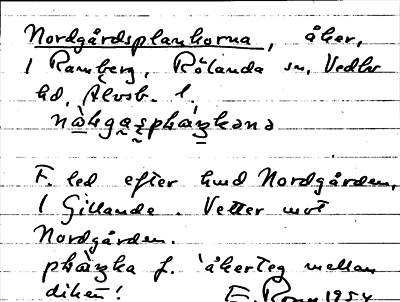 Nordgårdsplankorna, åker,
1 Ramberg, Rölanda sn, Vedbo
hd, Älvsb. l.
F. led efter hmd Nordgården,
1 Gillande. Vetter mot
Nordgården.
f. 'åkerteg mellan
diken!
1954